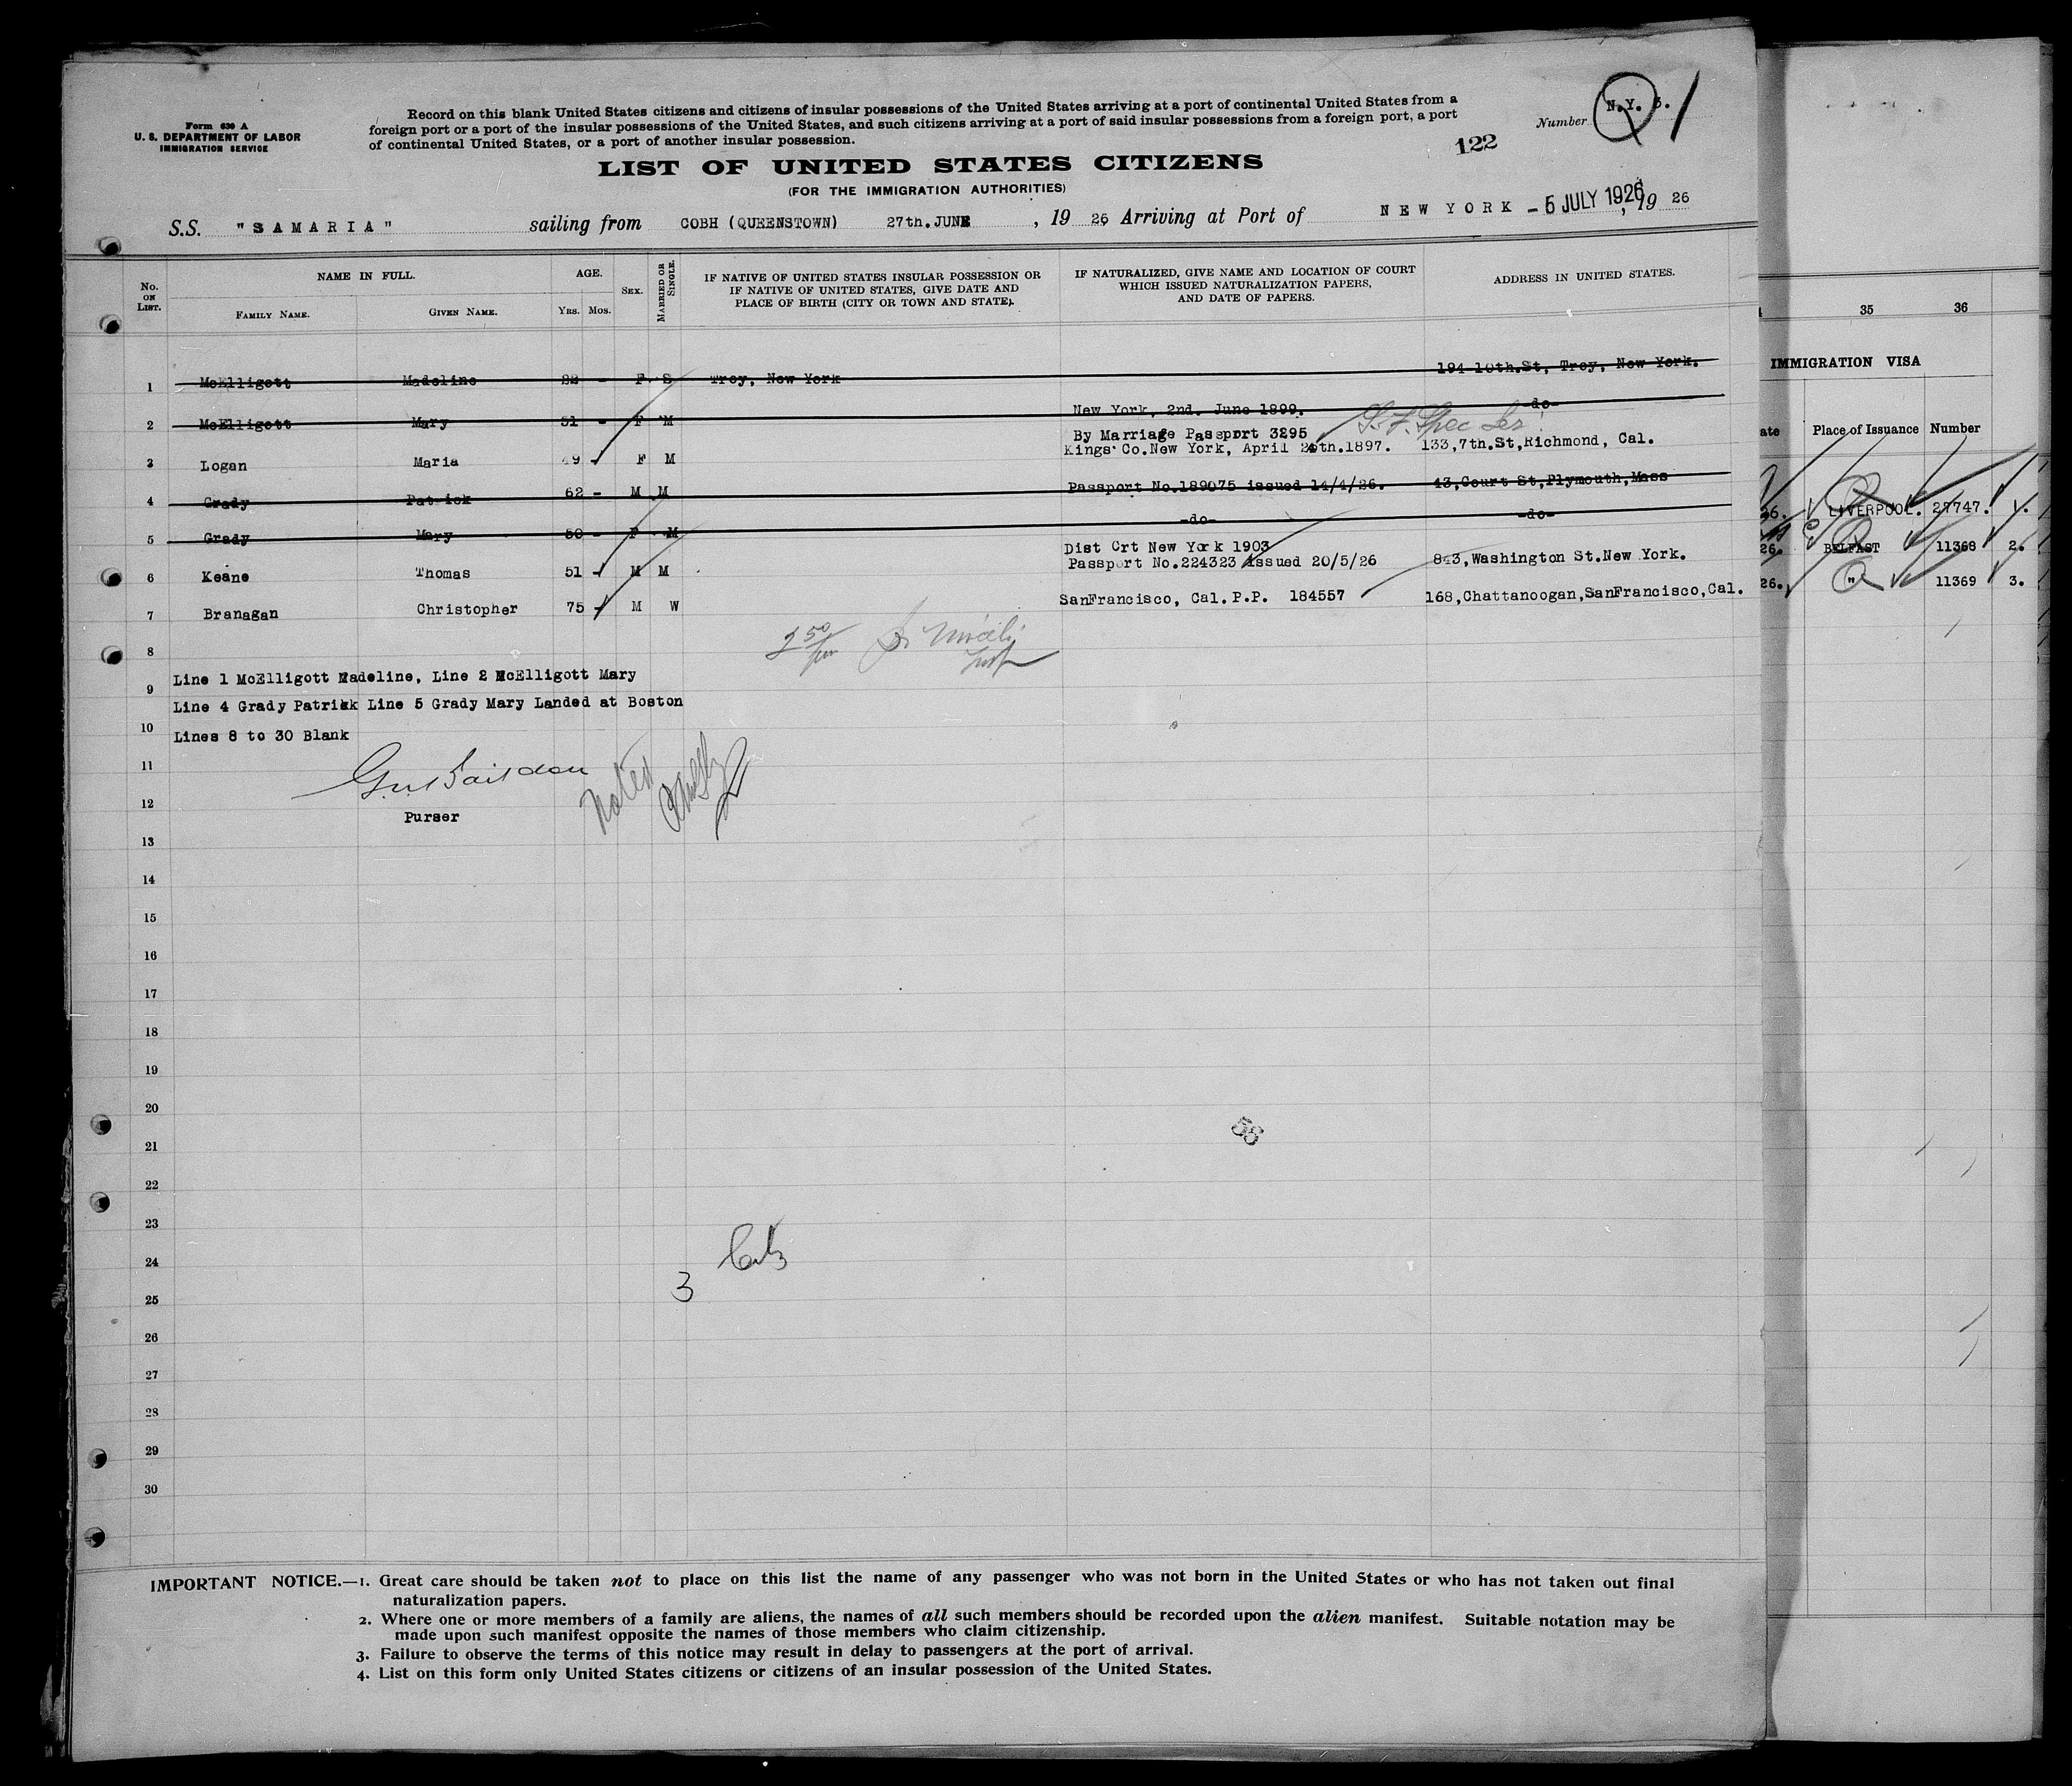 Form 630 A
U. S. DEPARTMENT OF LABOR
IMMIGRATION SERVICE
Record on this blank United States citizens and citizens of insular possessions of the United States arriving at a port of continental United States from a
foreign port or a port of the insular possessions of the United States, and such citizens arriving at a port of said insular possessions from a foreign port, a port
of continental United States, or a port of another insular possession.
Number N.Y. 1
122
LIST OF UNITED STATES CITIZENS
(FOR THE IMMIGRATION AUTHORITIES)
S.S. "SAMARIA" sailing from COBH (QUEENSTOWN) 27th.JUNE, 19 26 Arriving at Port of NEW YORK - 5 JULY 1926, 19 26
No. ON LIST. NAME IN FULL. AGE. SEX. MARRIED OR SINGLE. IF NATIVE OF UNITED STATES INSULAR POSSESSION OR IF NATIVE OF UNITED STATES, GIVE DATE AND PLACE OF BIRTH (CITY OR TOWN AND STATE). IF NATURALIZED, GIVE NAME AND LOCATION OF COURT WHICH ISSUED NATURALIZATION PAPERS, AND DATE OF PAPERS. ADDRESS IN UNITED STATES.
FAMILY NAME. GIVEN NAME. YRS. MOS.
1 McElligott Madeline 22 - F S Troy, New York 194 10th.St, Troy, New York.
2 McElligott Mary 51 - F M New York, 2nd. June 1899. -do-
By Marriage Passport 3295
3 Logan Maria 49 F M Kings Co.New York, April 20th.1897. 133,7th.St,Richmond, Cal.
4 Grady Patrick 62 - M M Passport No.189075 issued 14/4/26. 43,Court St,Plymouth,Mass
5 Grady Mary 50 - F M -do- -do-
Dist Crt New York 1903
6 Keane Thomas 51 - M M Passport No.224323 issued 20/5/26 843,Washington St.New York.
7 Branagan Christopher 75 - M W SanFrancisco, Cal.P.P. 184557 168,Chattanoogan,SanFrancisco,Cal.
8
9 Line 1 McElligott Madeline, Line 2 McElligott Mary
Line 4 Grady Patrick Line 5 Grady Mary Landed at Boston
10 Lines 8 to 30 Blank
11
12 Purser
Noted
13
14
15
16
17
18
19
20
58
21
22
23
24
3
25
26
27
28
29
30
IMPORTANT NOTICE.—1. Great care should be taken not to place on this list the name of any passenger who was not born in the United States or who has not taken out final
naturalization papers.
2. Where one or more members of a family are aliens, the names of all such members should be recorded upon the alien manifest. Suitable notation may be
made upon such manifest opposite the names of those members who claim citizenship.
3. Failure to observe the terms of this notice may result in delay to passengers at the port of arrival.
4. List on this form only United States citizens or citizens of an insular possession of the United States.
35 36
IMMIGRATION VISA
Place of Issuance Number
26. LIVERPOOL. 27747. 1.
26. BELFAST 11368 2.
26. " 11369 3.